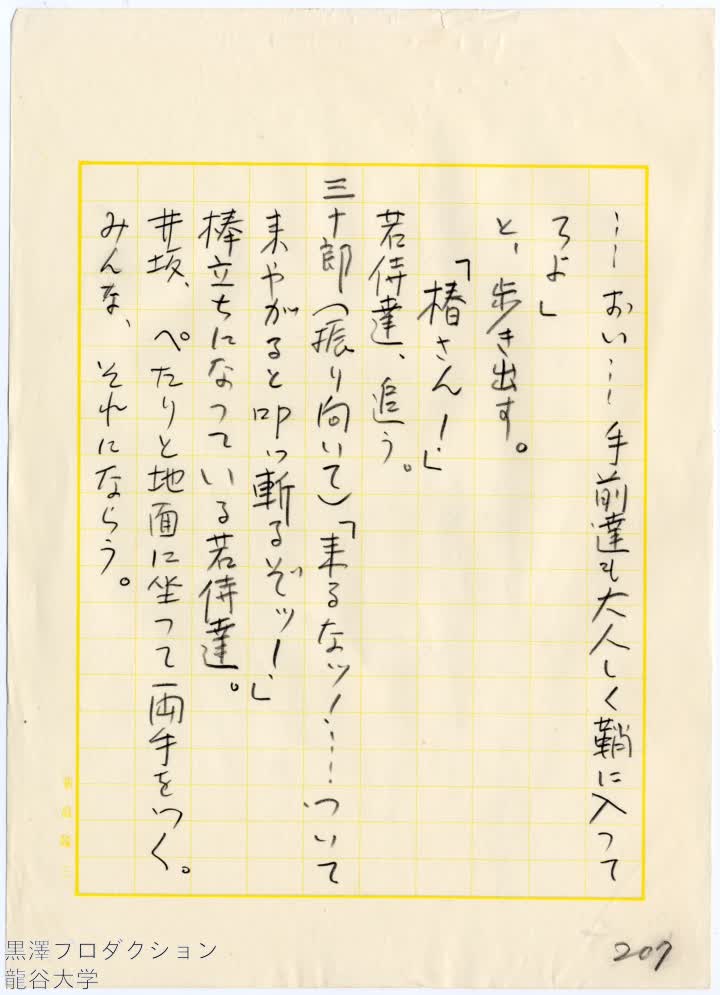 ……おい……手前達も大人しく鞘に入って
ろよ」
と、歩き出す。
「椿さん！」
若侍達、追う。
三十郎（振り向いて）「来るなッ！……ついて
来やがると叩っ斬るぞッ！」
棒立ちになっている若侍達。
井坂、ぺたりと地面に坐って両手をつく。
みんな、それにならう。
207
黒澤プロダクション
龍谷大学